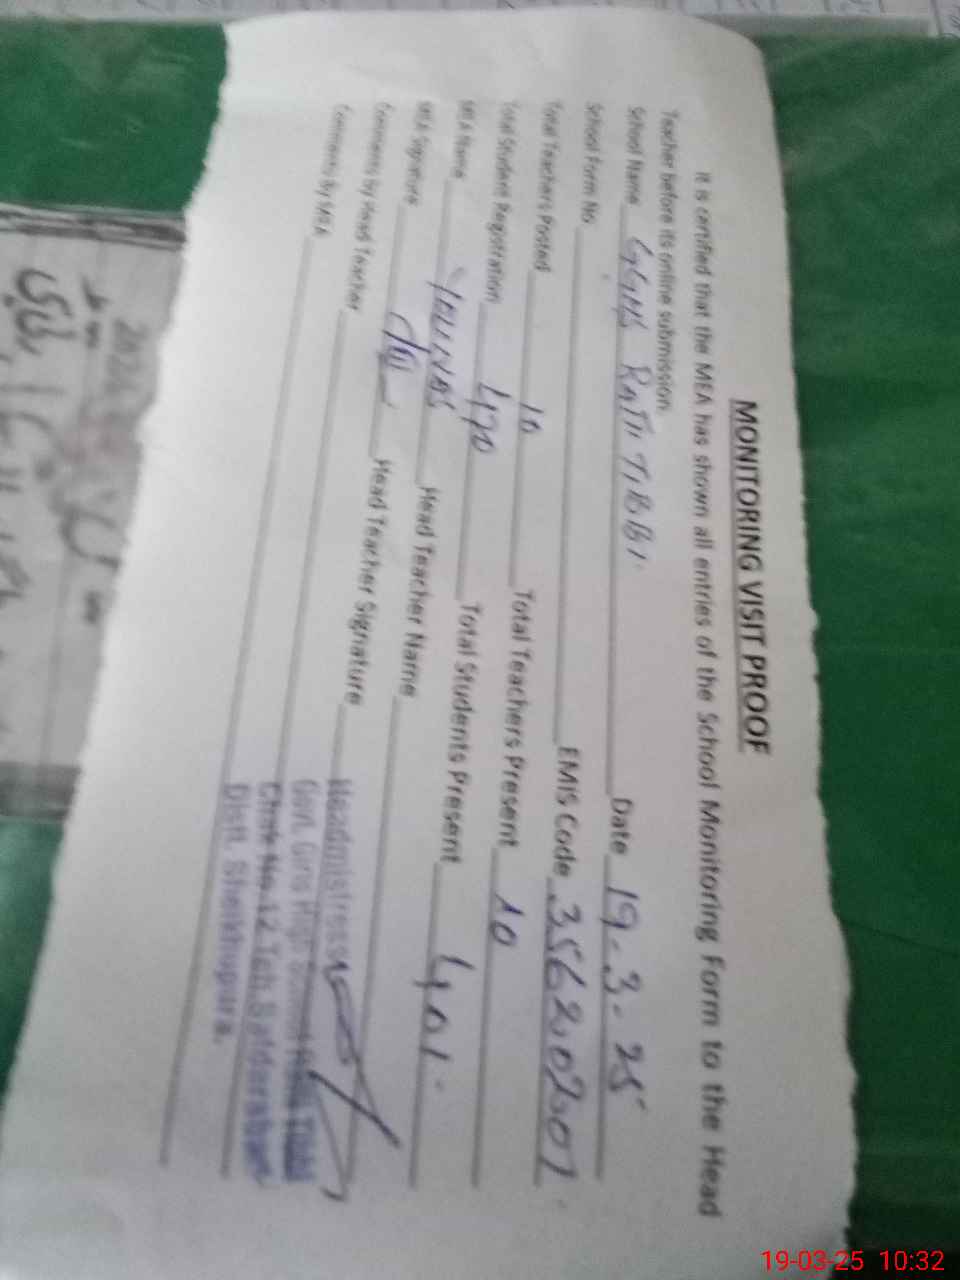 MONITORING VISIT PROOF
It is certified that the MEA has shown all entries of the School Monitoring Form to the Head
Teacher before its online submission.
School Name GGHS RATTI TIBBI. Date 19-3-25
School Form No EMIS Code 35620207
Total Teachers Posted 10 Total Teachers Present 10
Total Student Registration 470 Total Students Present 401.
MEA Name YOUNAS Head Teacher Name
MEA Signature Head Teacher Signature
Comments by Head Teacher
Comments By MEA
Headmistress
Govt. Girls High School Ratti Tibbi
Chak No.12 Teh.Safdarabad
Distt. Sheikhupura.
19-03-25 10:32